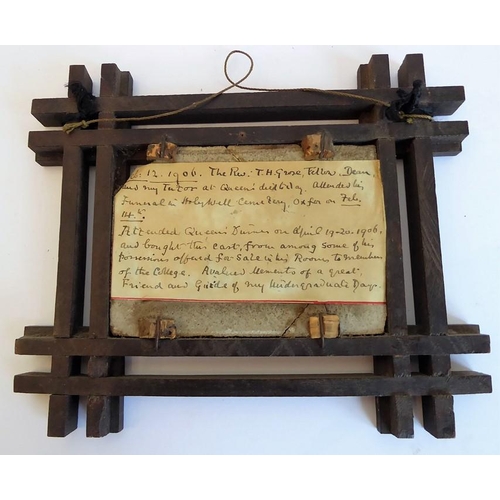 12. 1906. The Rev. T. H. Grose, Fellow, Dean
and my Tutor at Queens died today. Attended his
Funeral in Holywell Cemetery, Oxford on Feb.
14th.
Attended Queens Dinner on April 19-20. 1906,
and bought this cast, from among some of his
possessions offered for Sale in his Rooms to members
of the College. A valued Memento of a great
Friend and Guide of my Undergraduate Days.